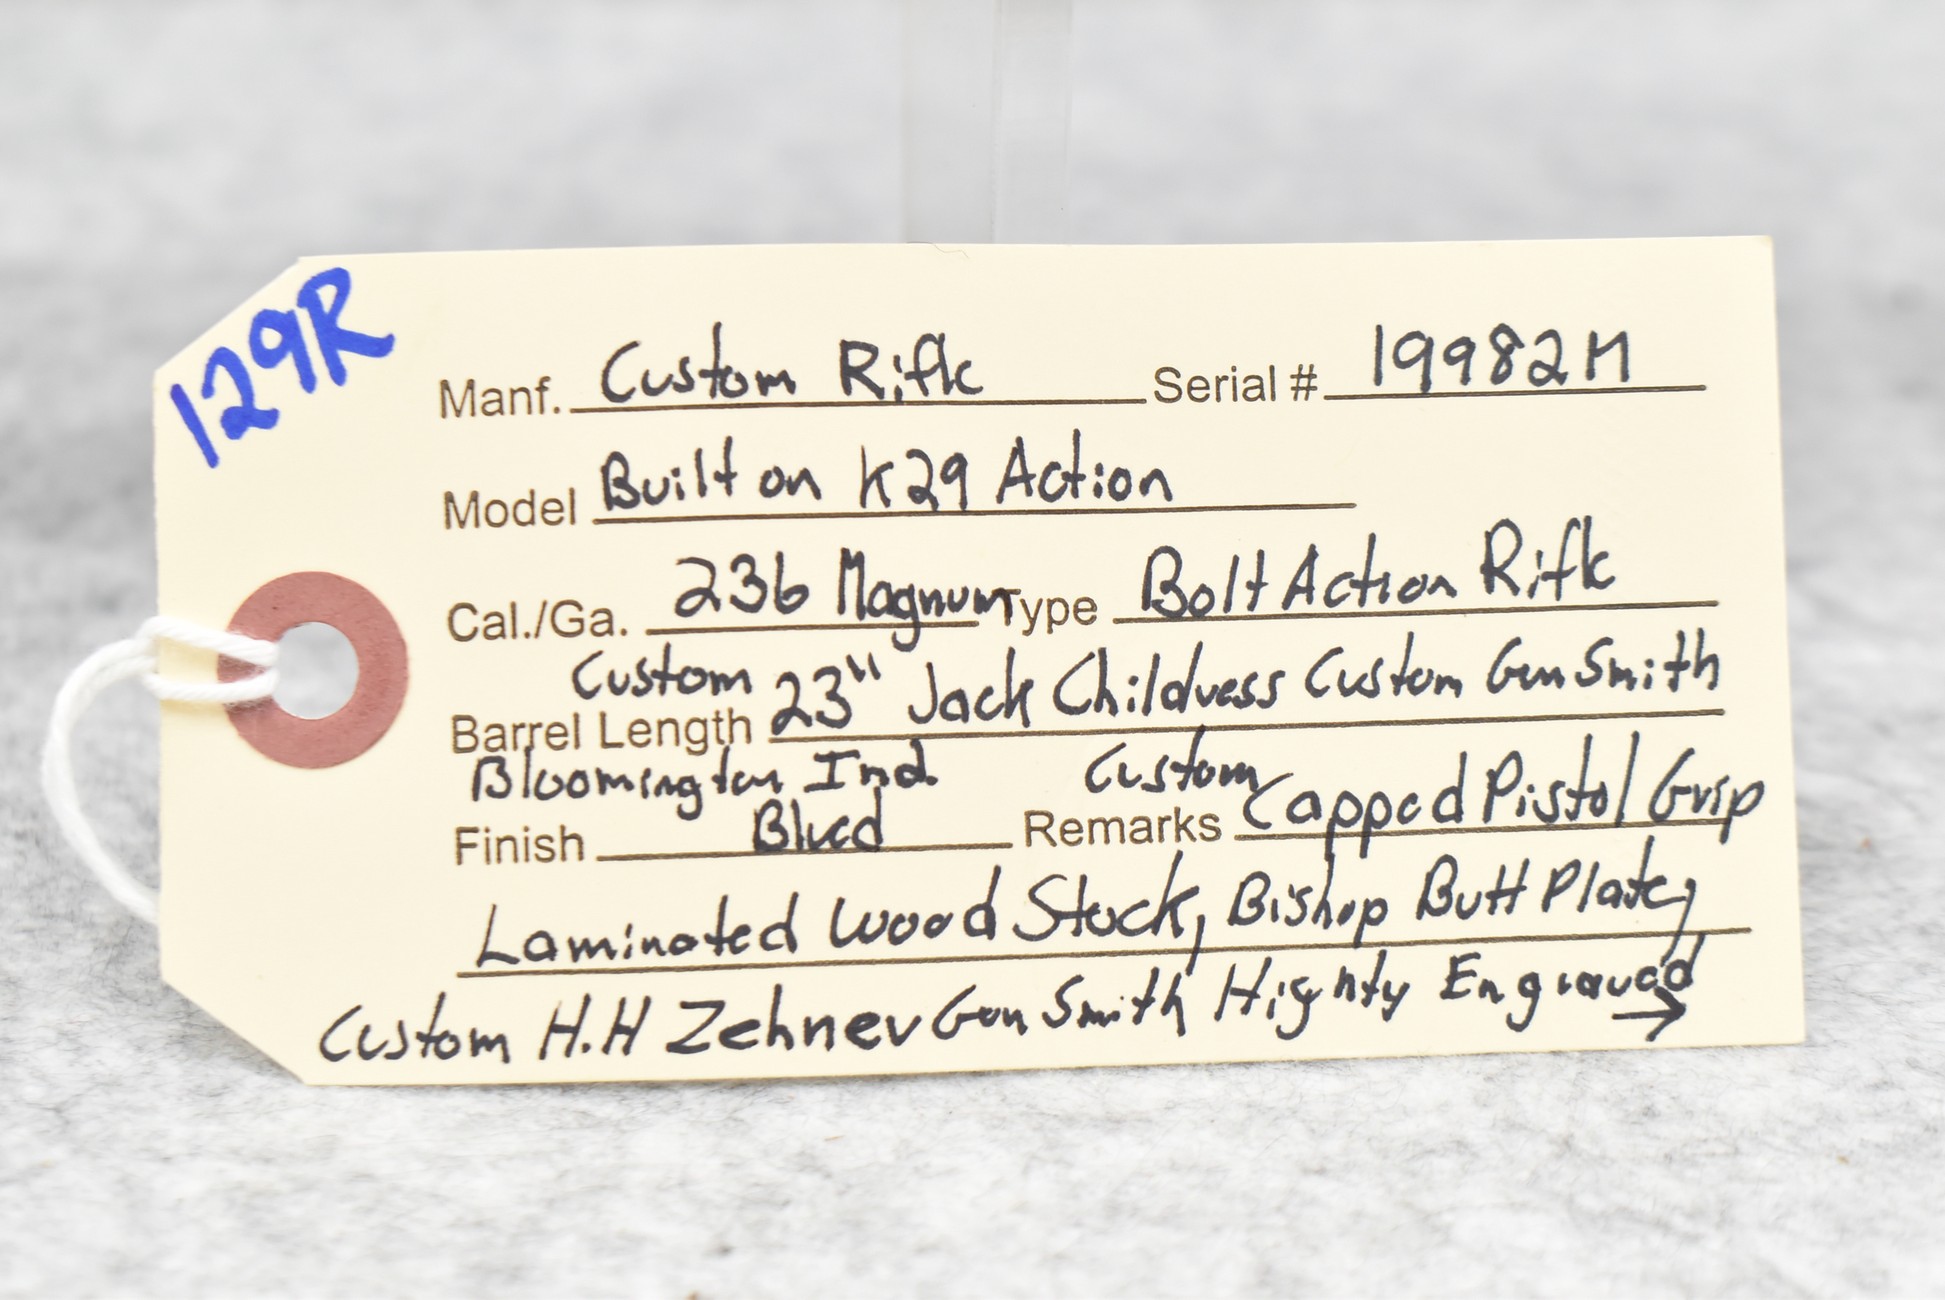 129R
Manf. Custom Rifle Serial # 19982M
Model Built on K29 Action
Cal./Ga. 236 Magnum Type Bolt Action Rifle
Custom
Barrel Length 23" Jack Childress Custom Gun Smith
Bloomington Ind. Custom
Finish Blued Remarks Capped Pistol Grip
Laminated Wood Stock, Bishop Butt Plate,
Custom H.H Zehner Gun Smith Highty Engraved →